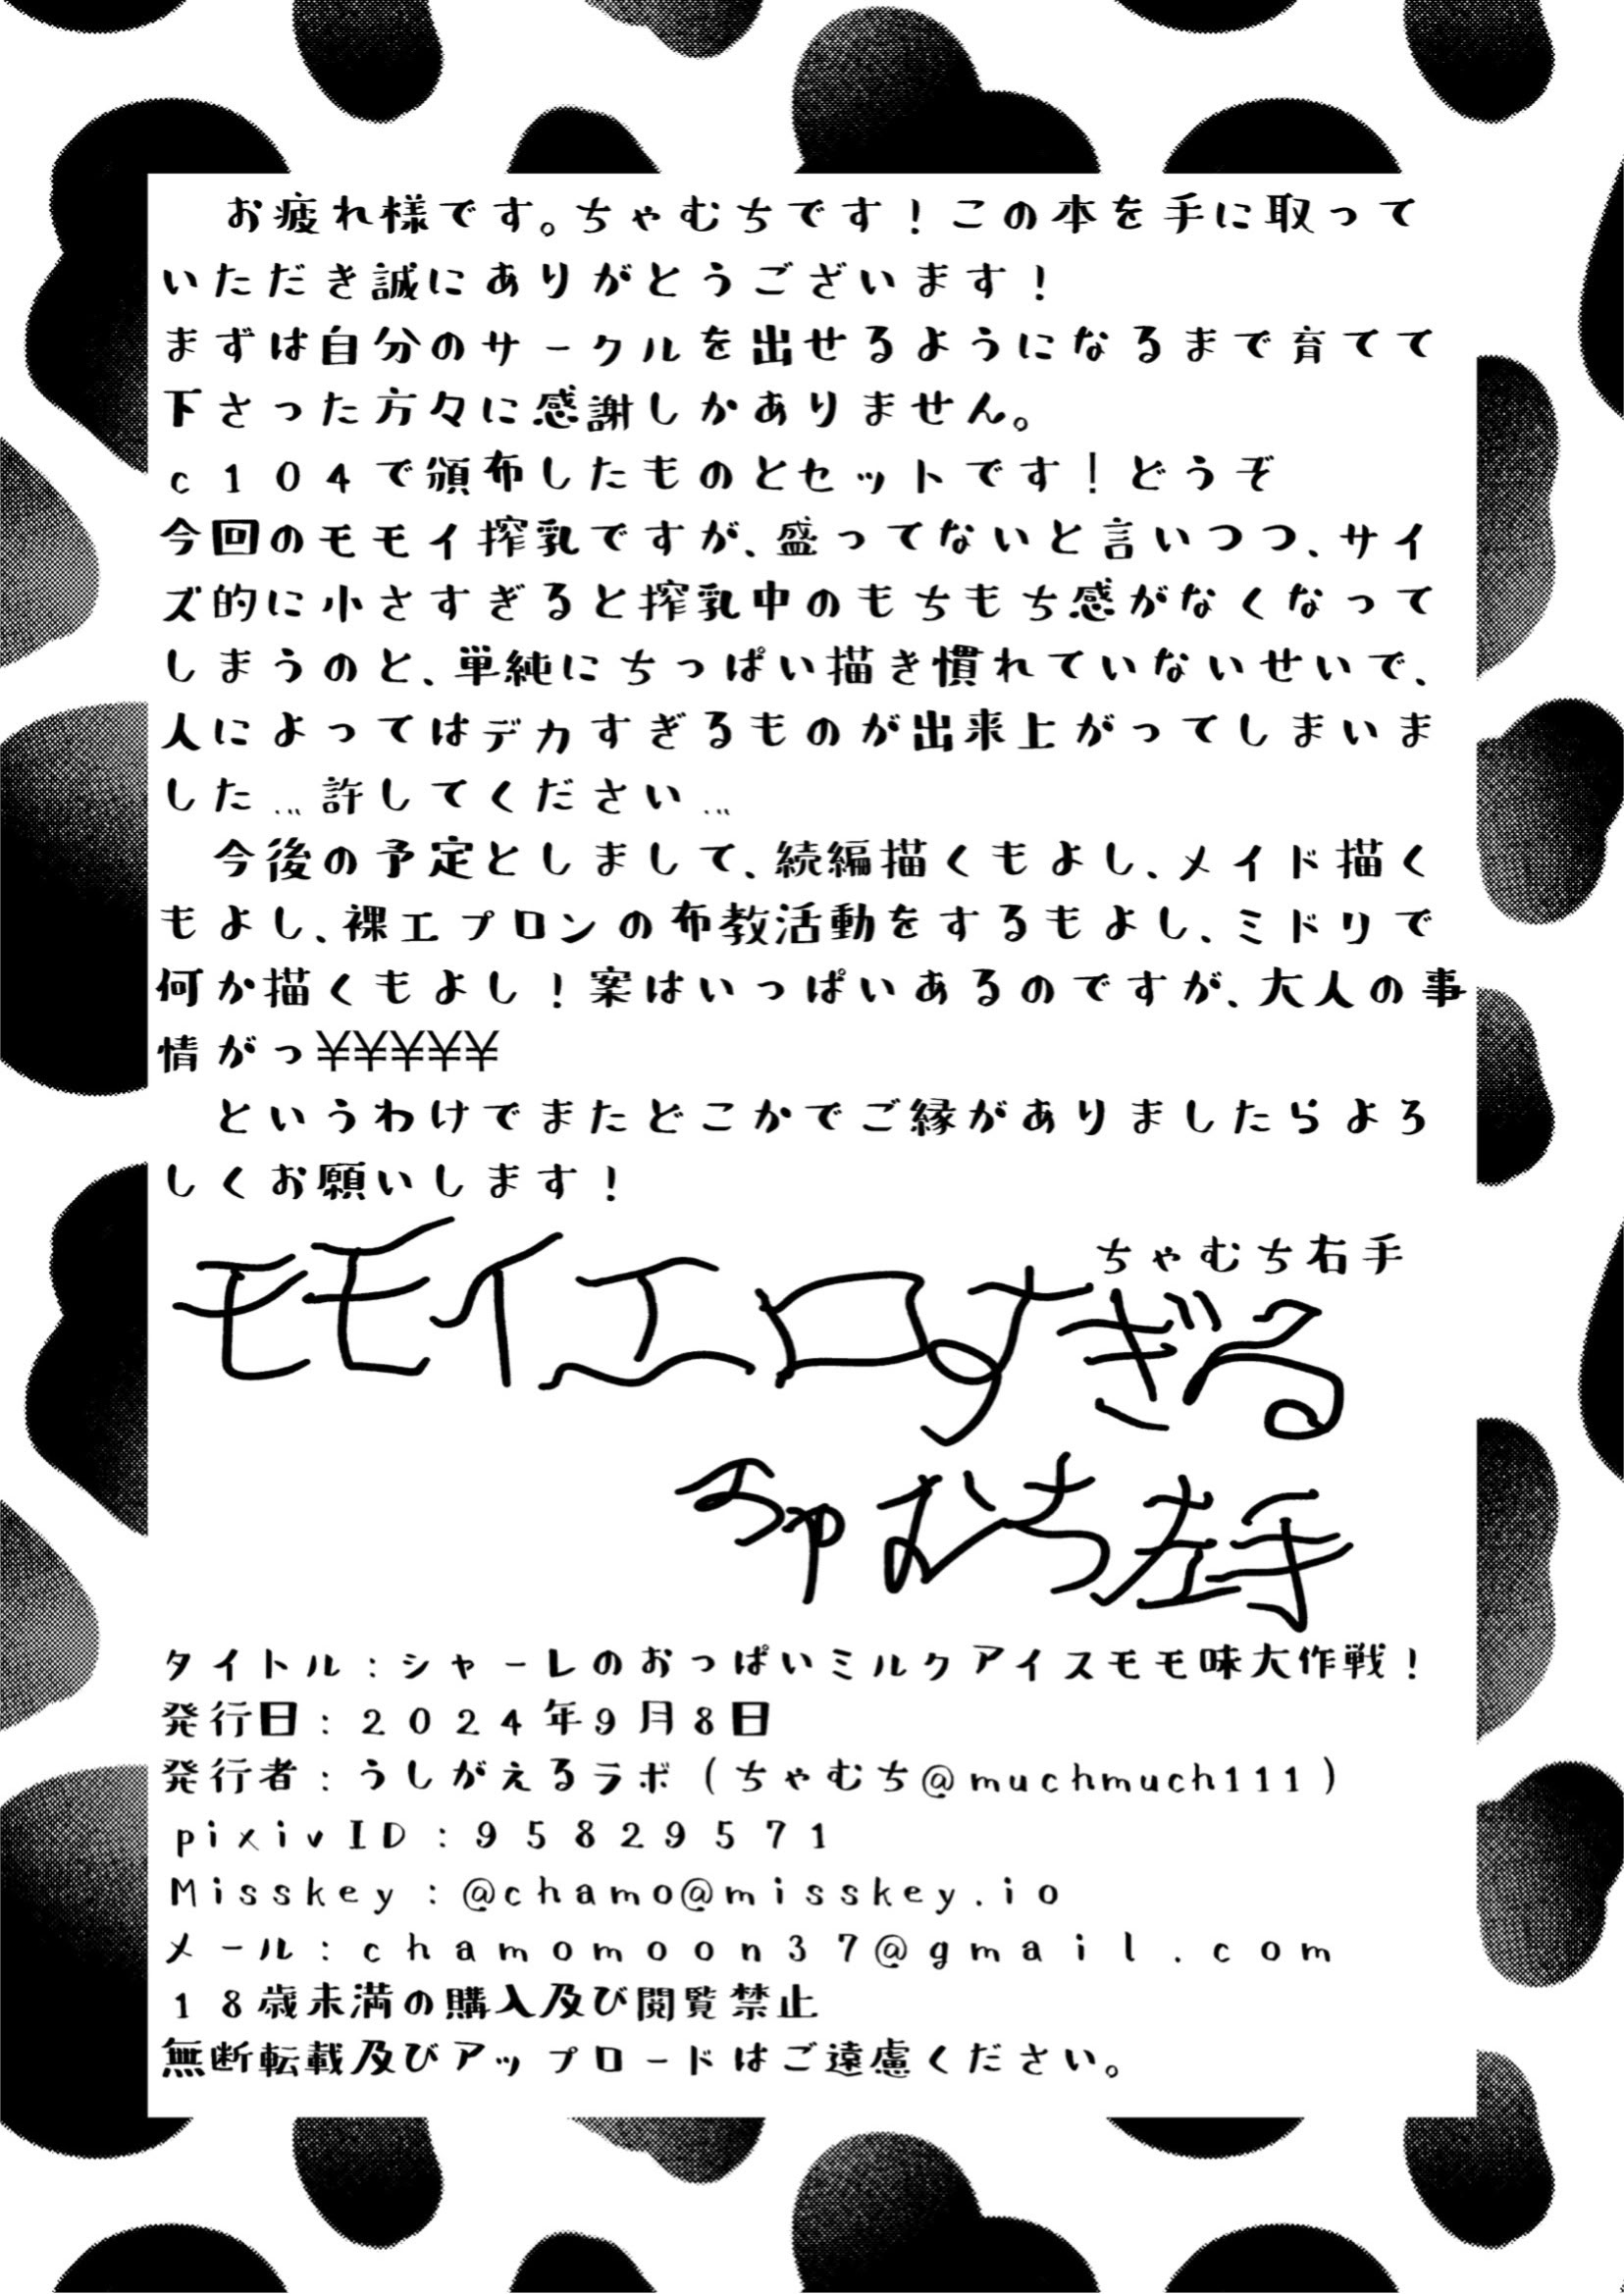 お疲れ様です。ちゃむちです！この本を手に取って
いただき誠にありがとうございます！
まずは自分のサークルを出せるようになるまで育てて
下さった方々に感謝しかありません。
c１０４で頒布したものとセットです！どうぞ
今回のモモイ搾乳ですが、盛ってないと言いつつ、サイ
ズ的に小さすぎると搾乳中のもちもち感がなくなって
しまうのと、単純にちっぱい描き慣れていないせいで、
人によってはデカすぎるものが出来上がってしまいま
した…許してください…
今後の予定としまして、続編描くもよし、メイド描く
もよし、裸エプロンの布教活動をするもよし、ミドリで
何か描くもよし！案はいっぱいあるのですが、大人の事
情がっ¥¥¥¥¥
というわけでまたどこかでご縁がありましたらよろ
しくお願いします！
ちゃむち右手
モモイエロすぎる
ちゃむち左手
タイトル：シャーレのおっぱいミルクアイスモモ味大作戦！
発行日：２０２４年９月８日
発行者：うしがえるラボ（ちゃむち@muchmuch111）
pixivID：９５８２９５７１
Misskey：@chamo@misskey.io
メール：chamomoon37@gmail.com
１８歳未満の購入及び閲覧禁止
無断転載及びアップロードはご遠慮ください。